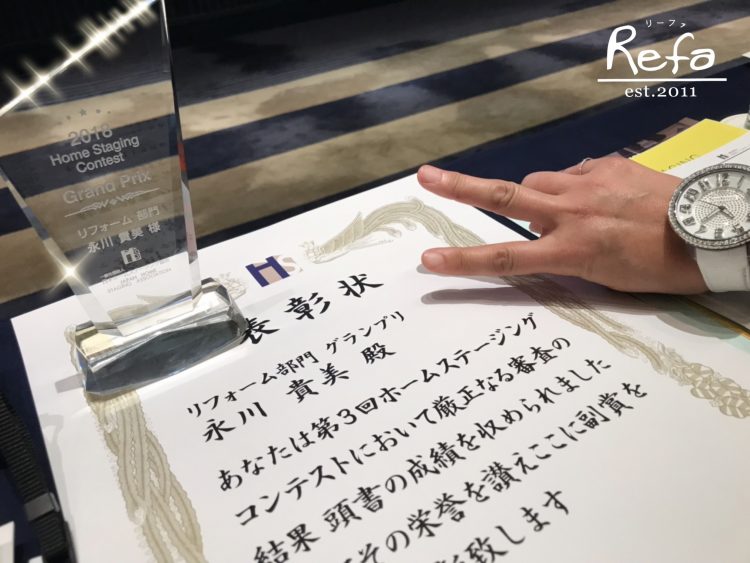 リーファ
Refa
est.2011
2018
Home Staging
Contest
Grand Prix
リフォーム 部門
永川 貴美 様
JAPAN HOME
STAGING ASSOCIATION
HS
表彰状
リフォーム部門 グランプリ
永川 貴美 殿
あなたは第3回ホームステージング
コンテストにおいて厳正なる審査の
結果 頭書の成績を収められました
その栄誉を讃えここに副賞を
致します